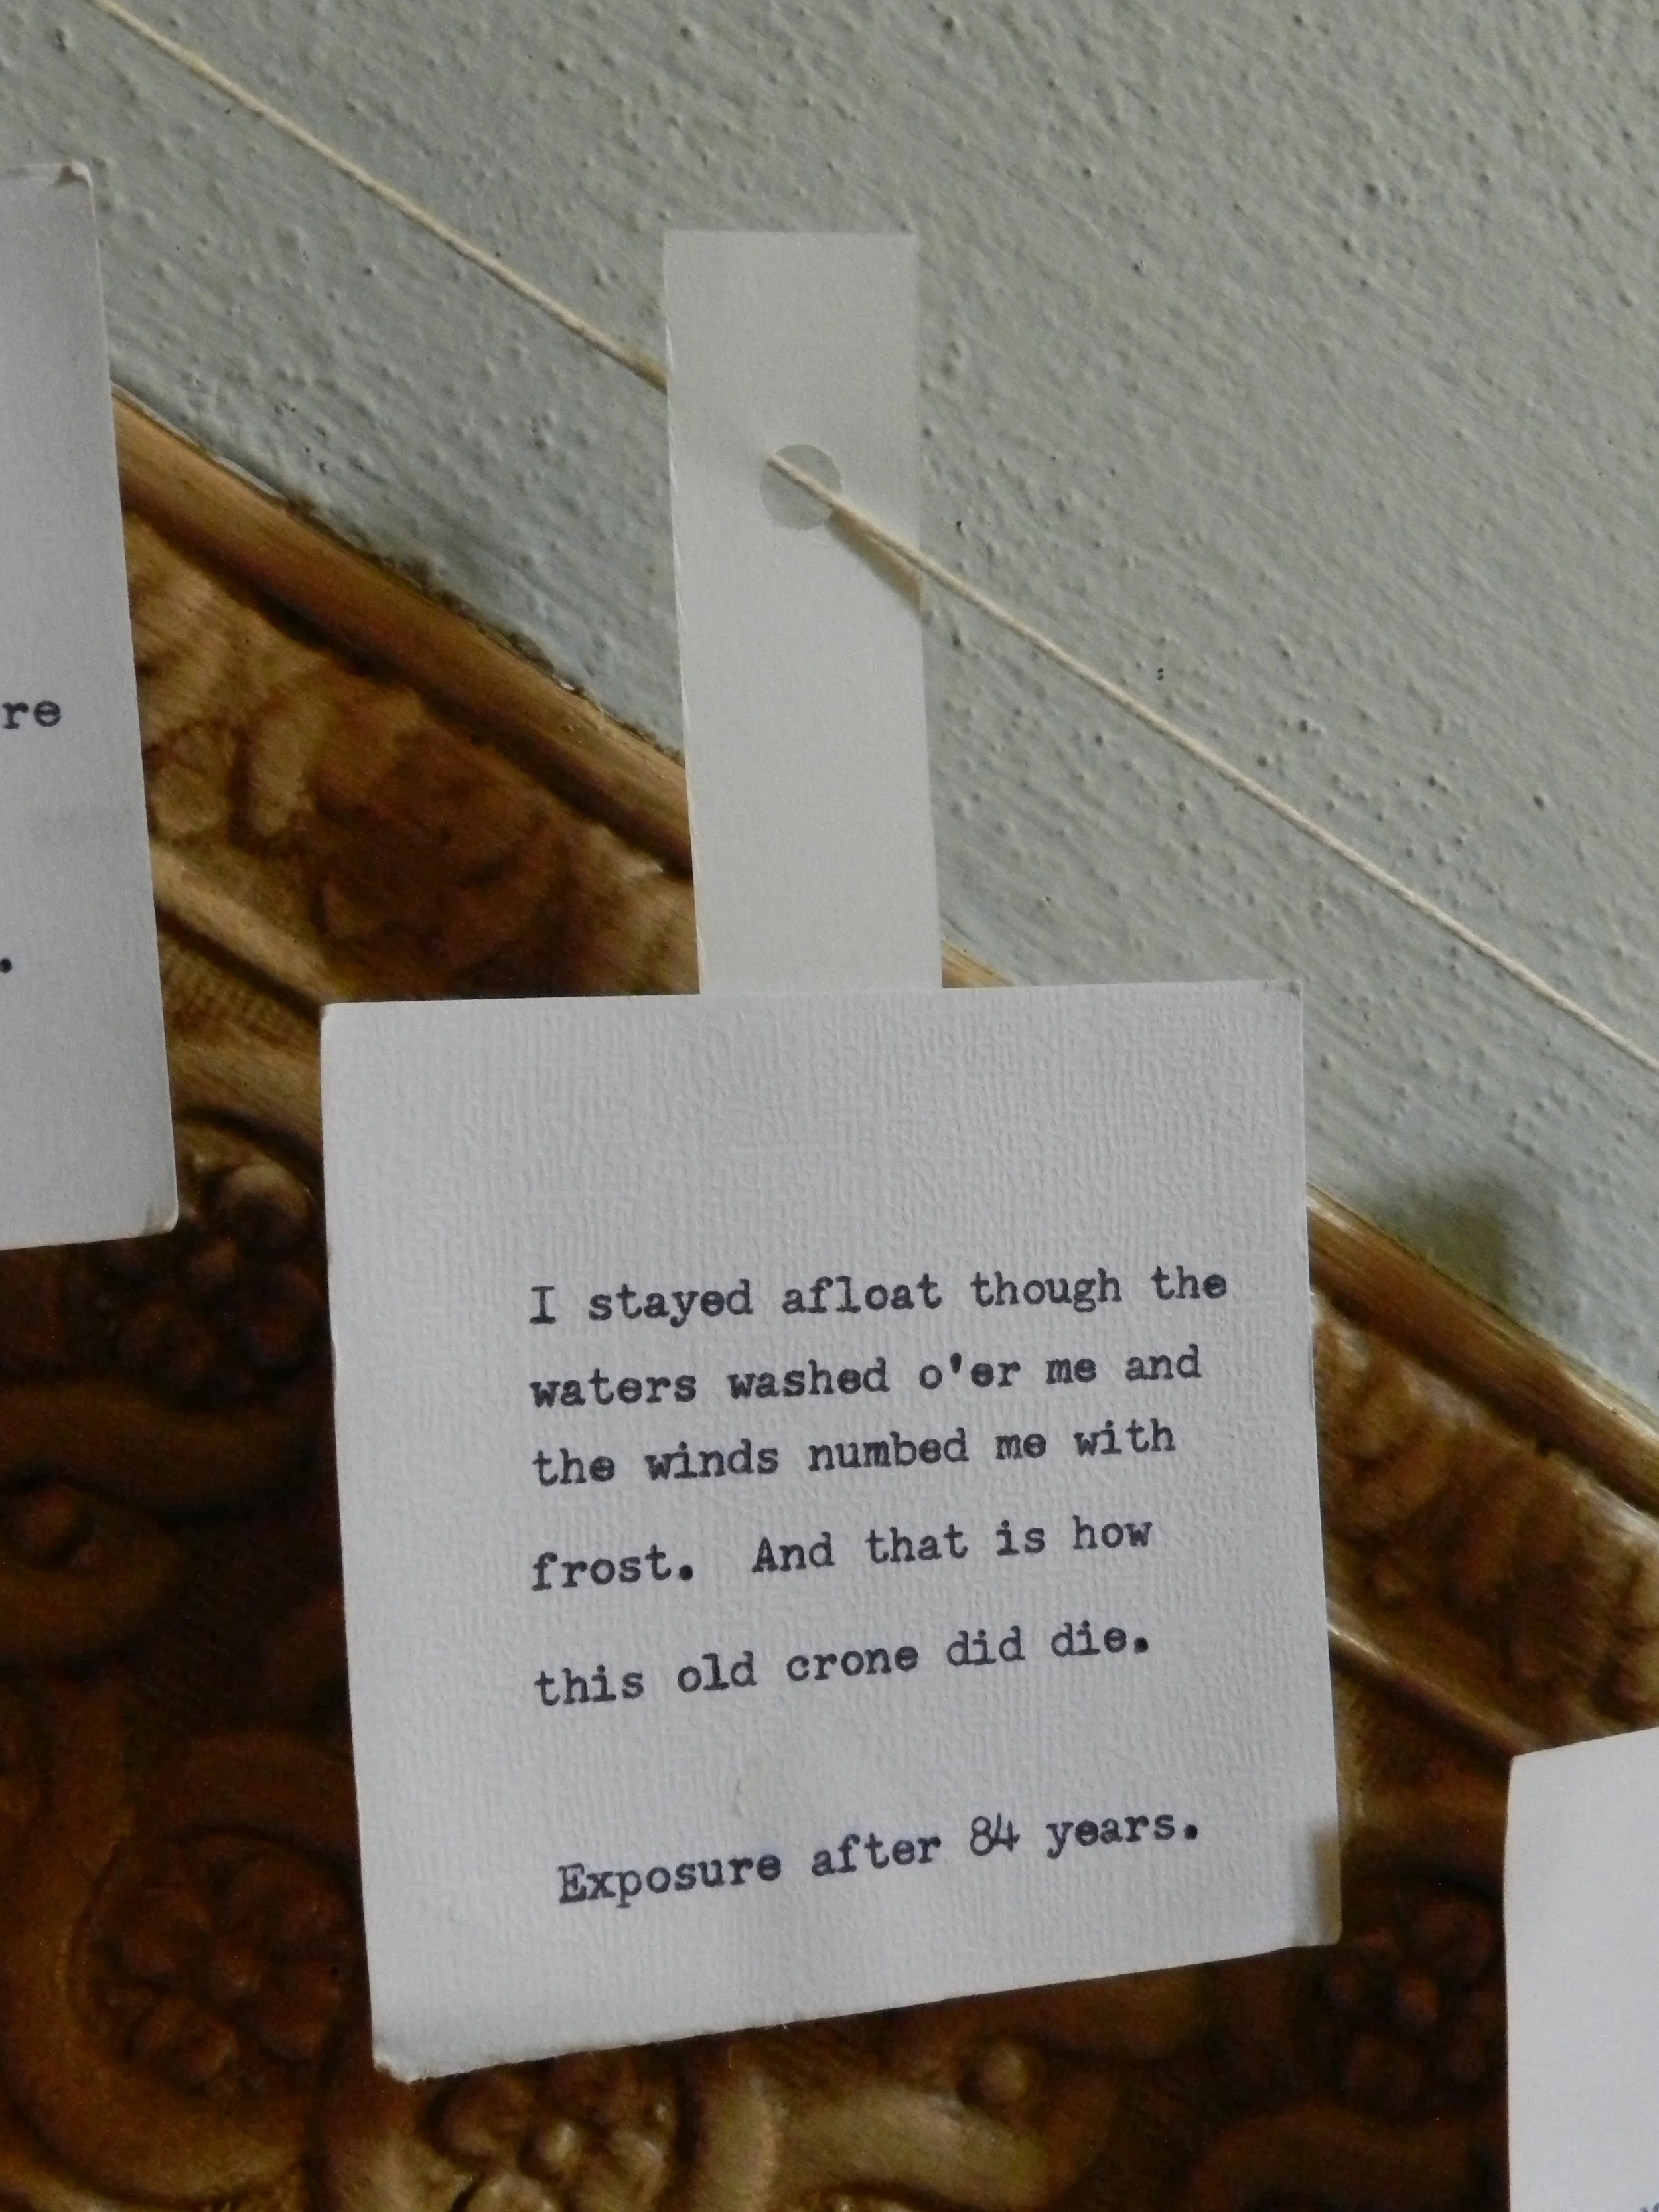 re
.
I stayed afloat though the
waters washed o'er me and
the winds numbed me with
frost.  And that is how
this old crone did die.
Exposure after 84 years.